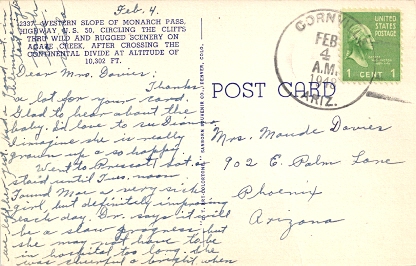 Feb. 4.
2337. WESTERN SLOPE OF MONARCH PASS,
HIGHWAY U.S. 50, CIRCLING THE CLIFFS
THRU WILD AND RUGGED SCENERY ON
AGATE CREEK, AFTER CROSSING THE
CONTINENTAL DIVIDE AT ALTITUDE OF
10,302 FT.
Dear Mrs. Davier:
Thanks
a lot for your card.
Glad to hear about the
baby. I'd love to see
imagine she is really
grown up & so happy.
Went to Prescott Sat.
staid until Tues. noon.
Found Mae a very sick
girl, but definitely improving
each day. Dr. says it will
be a slow progress, but
she may not have to be
in hospital too long. She
was cheerful & bright when
POST CARD
CORN
FEB
4
A.M.
ARIZ.
UNITED STATES POSTAGE
1 CENT 1
Mrs. Maude Davier
902 E. Palm Lane
Phoenix
Arizona